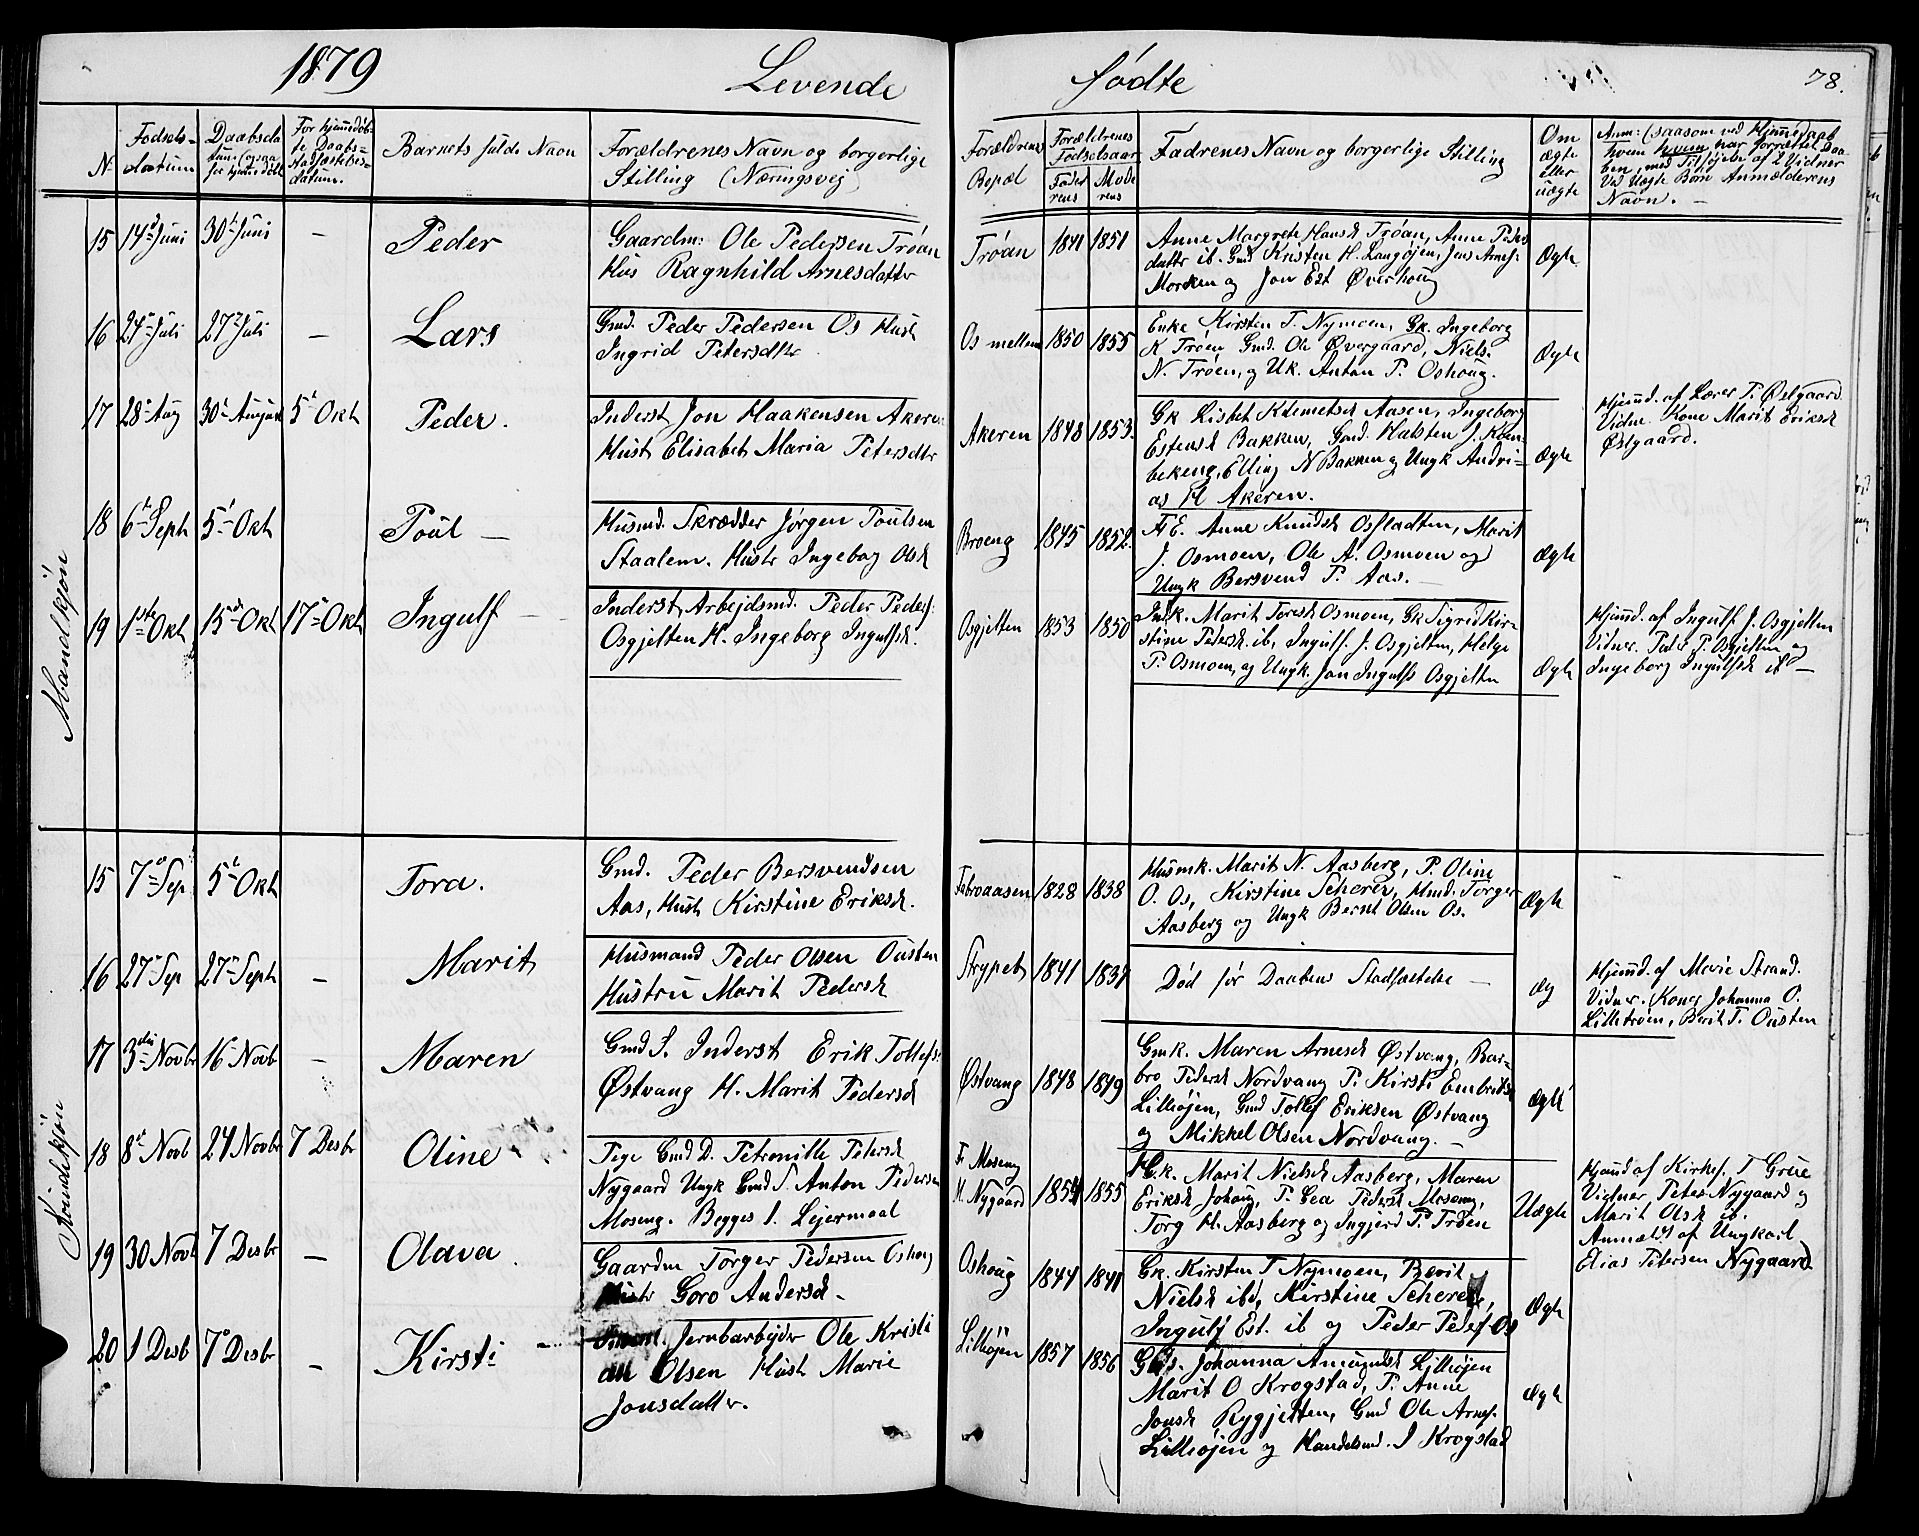 1879
Levende
fødte
78.
N.
Fødsels-
datum
Daabsda
tum (ogsaa
for hjemmedøbt
For hjemmedøb-
te Daabs=
stadfæstelses=
datum.
Barnets fulde Navn
Forældrenes Navn og borgerlige
Stilling (Næringsvej)
Forældrenes
Bopæl
Forældrenes
Fødselsaar
Fader
rens
Mode
rens
Fadrenes Navn og borgerlige Stilling
Om
ægte
eller
uægte
Anm: (saasom ved Hjemmedaab
hvem hvem har forrettet Daa-
ben, med Tilføjelse af 2 Vidner
Ved Uægte Børn Anmælderens
Navn. —
Mandkjøn
15 14 Juni 30 Juni —
Peder
Gaardm: Ole Pedersen Trøan
Hus Ragnhild Arnesdatter
Trøan 1841 1851
Anne Margrete Hansd Trøan, Anne Peders
datter ib. Gmd Kristen H. Langøjen, Jens Arnes:
Morken og Jon Est Øverhoug
Ægte
16 24 Juli 27 Juli —
Lars
Gmd. Peder Pedersen Os Hust
Ingrid Petersdtr
Os mellem 1850 1855
Enke Kirsten T. Nymoen, Gk. Ingeborg
K Trøen Gmd. Ole Øvergaard, Niels
N. Trøen, og Uk. Anton P. Oshoug.
Ægte
17 28 Aug 30 August 5 Okt
Peder.
Inderst Jon Haakensen Akeren
Hust Elisabet Maria Petersdtr
Akeren 1848 1853.
Gk Lisbet Klemetsd Aasen, Ingeborg
Estensd Bakken, Gmd. Halsten J. Koen-
bekeng, Elling N Bakken og Ungk Andri-
as H Akeren.
Ægte
Hjemd. af Lærer P. Østgaard
Vidne Kone Marit Eriksd
Østgaard.
18 6 Sept 5 Okt
Poul —
Husmd. Skrædder Jørgen Poulsen
Staalem. Hustr Ingeborg Olsd
Broeng 1845 1852.
FE. Anne Knudsd Osfladten, Marit
J. Osmoen, Ole A. Osmoen og
Ungk Bersvend P. Aas. —
Ægte
19 1ste Okt 15 Okt 17 Okt
Ingulf —
Inderst, Arbejdsmd. Peder Peders:
Osgjelten H. Ingeborg Ingulfsd.
Osgjelten 1853 1850
Indk. Marit Toresd Osmoen, Gk Sigrid Kir-
stine Pedersd ib, Ingulf. J. Osgjelten, Helge
P. Osmoen, og Ungk. Jon Ingulfs Osgjelten
Ægte
Hjemmd. af Ingulf J. Osgjelten
Vidner. Peder P. Osgjelten og
Ingeborg Ingulfsd ib —
Kvindekjøn
15 7 Sep. 5 Okt
Tora.
Gmd. Peder Bersvendsen
Aas, Hust Kirstine Eriksd.
1828 1838
Husmk. Marit N. Aasberg, P. Oline
O. Os, Kirstine Scherer, Hmd. Torger
Aasberg og Ungk Bernt Olsen Os.
Ægte
16 27 Sep 27 Sept —
Marit
Husmand Peder Olsen Ousten
Hustru Marit Pedersd
Strypet 1841 1837
Død før Daabens Stadfæstelse —
æg
Hjemmd. af Marie Strand.
Vidner. Koner Johanna O.
Lilletrøen, Berit T. Ousten
17 3die Novbr 16 Novb —
Maren
Gmd S. Inderst Erik Tollefs:
Østvang H. Marit Pedersd
Østvang 1848 1849
Gmk. Maren Arnesd Østvang, Bar-
bro Pedersd Nordvang P. Kirsti Embriksd
Lilleøjen, Gmd Tollef Eriksen Østvang
og Mikkel Olsen Nordvang. —
ægte
18 8 Novb 24 Novbr 7 Desbr
Oline
Pige Gmd D. Petronille Petersd
Nygaard Ungk Gmd S. Anton Pedersen
Moseng. Begges 1. Lejermaal
F. Moseng
M. Nygaard 1854 1855
Gk. Marit Nielsd Aasberg, Maren
Eriksd Johoug, P. Lea Pedersd Moseng,
Torg H. Aasberg og Ingjerd P. Trøen
Uægte
Hjemd af Kirkes. T Grue
Vidner, Peter Nygaard og
Marit Olsd ib.
Anmeldt af Ungkarl
Elias Petersen Nygaard
19 30 Novb 7 Desbr —
Olava.
Gaardm Torger Pedersen Oshoug
Hustr Goro Andersd —
Oshoug 1844 1841
Gk. Kirsten T Nymoen, Berit
Nielsd ibd, Kirstine Scherer,
Ingulf Est. ib og Peder Peders Os
Ægte
20 1 Desb 7 Desbr —
Kirsti —
Jernbarbejder Ole Kristi
an Olsen Hust Marie
Jonsdatter.
Lilleøjen 1857 1856
Johanna Amundsd Lilleøjen
Marit O Krogstad, P. Anne
Jonsd Rygjelten, Gmd Ole Arnes.
Lilleøjen og Handelsmd. J Krogstad
Ægte